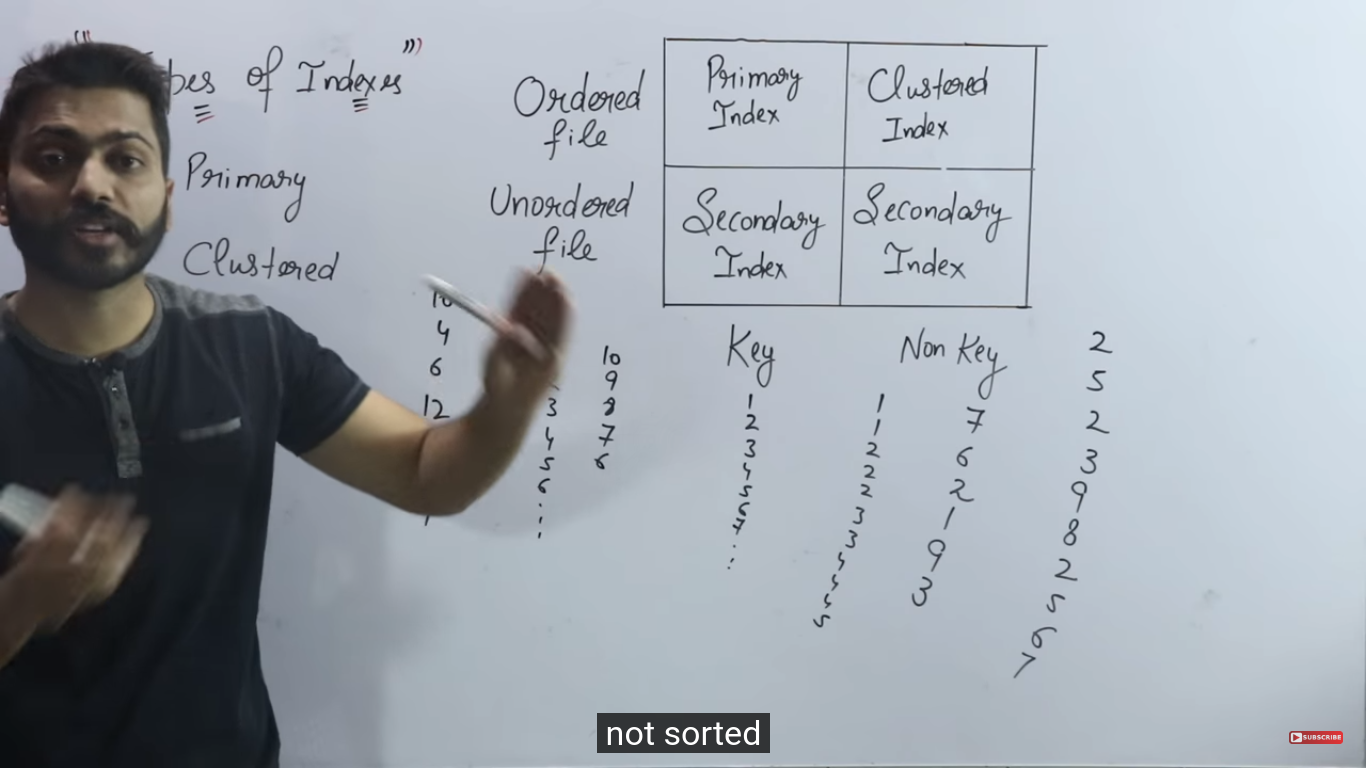 Types of Indexes
Primary
Clustered
Ordered
file
Unordered
file
Primary
Index
Clustered
Index
Secondary
Index
Secondary
Index
Key
Non Key
10
4
6
12
3
4
5
6
10
9
8
7
6
1
2
3
4
5
6
7
1
1
2
2
2
3
3
4
4
4
5
7
6
2
1
9
3
2
5
2
3
9
8
2
5
6
7
not sorted
SUBSCRIBE